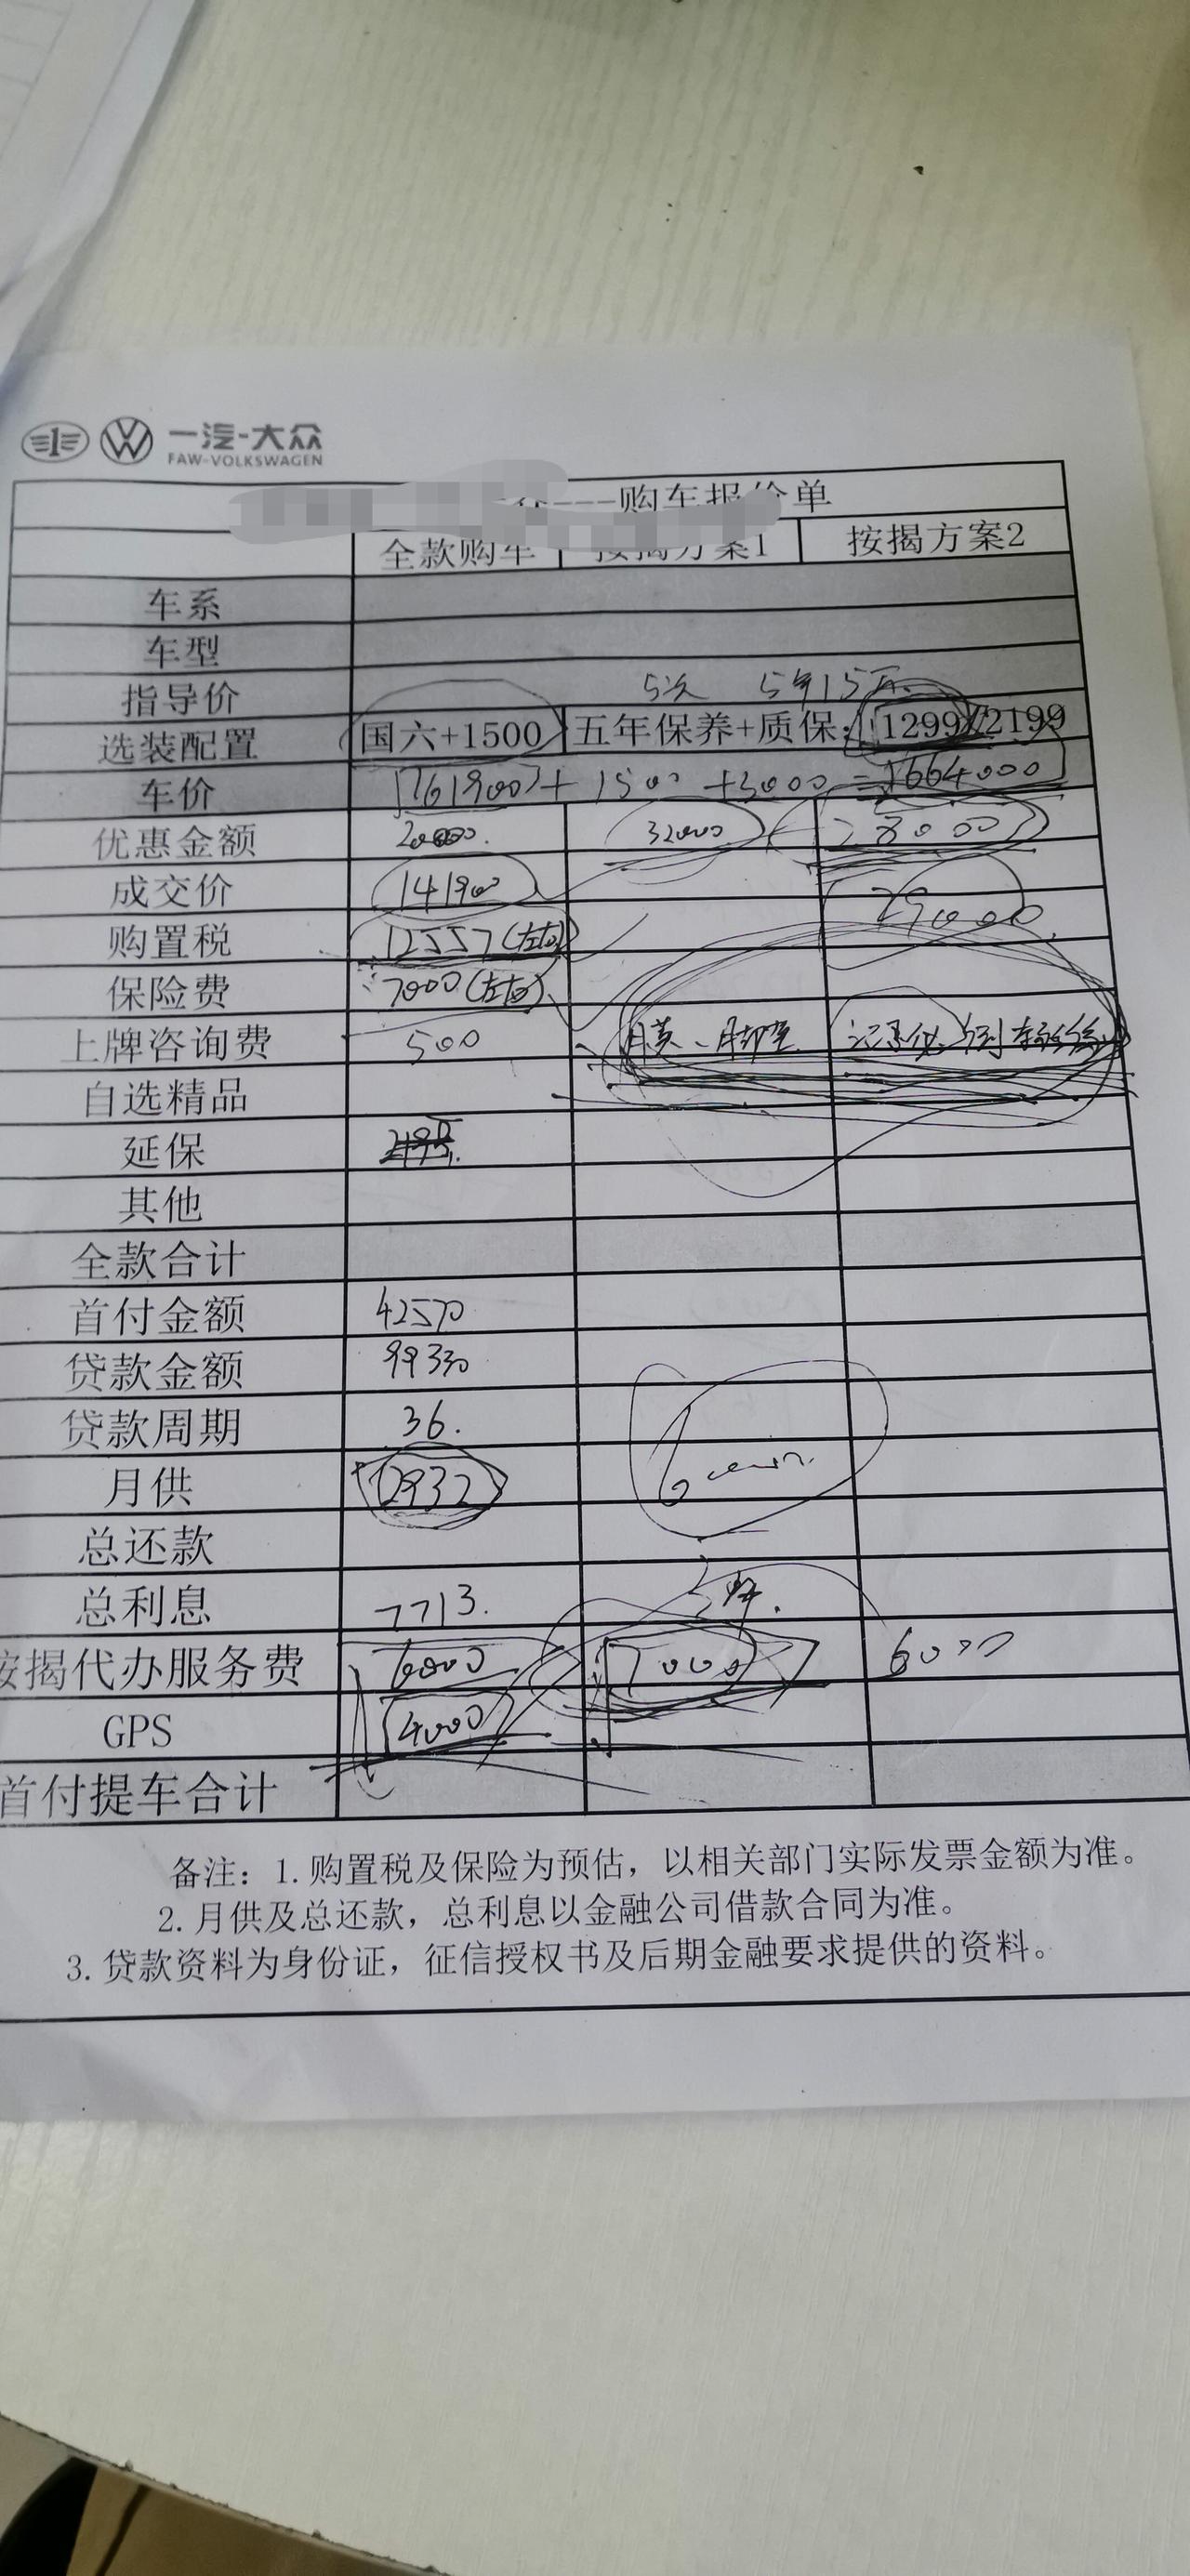 一汽-大众
FAW-VOLKSWAGEN
---购车报价单
全款购车 按揭方案1 按揭方案2
车系
车型
指导价 5次 5年15万
选装配置 国六+1500 五年保养+质保: 1299/2199
车价 161900+1500+3000=1664000
优惠金额 20000. 32000 28000
成交价 141900 29000
购置税 12557(左右)
保险费 7000(左右)
上牌咨询费 500 脚垫 记录仪
自选精品
延保
其他
全款合计
首付金额 42570
贷款金额 99330
贷款周期 36.
月供 2932
总还款
总利息 7713. 5年.
按揭代办服务费 6000 7000 6000
GPS 4000
首付提车合计
备注: 1.购置税及保险为预估，以相关部门实际发票金额为准。
2.月供及总还款，总利息以金融公司借款合同为准。
3.贷款资料为身份证，征信授权书及后期金融要求提供的资料。